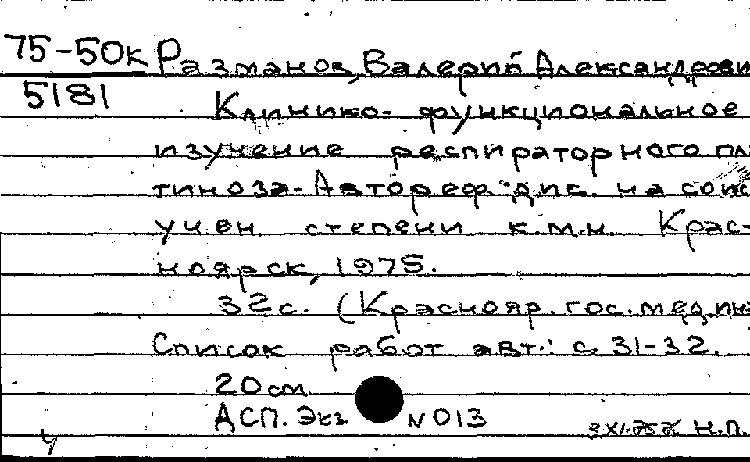 75-50к Размахов, Валерий Александрови
5181
Клинико-функциональное
изучение респираторного пл
тиноза.-Автореф. дис. на соис
учен. степени к.м.н. Крас-
ноярск, 1975.
32 с. (Краснояр. гос. мед. ин
Список работ авт.: с. 31-32.
20 см
АСП. Экз N 013
Н.П.
4